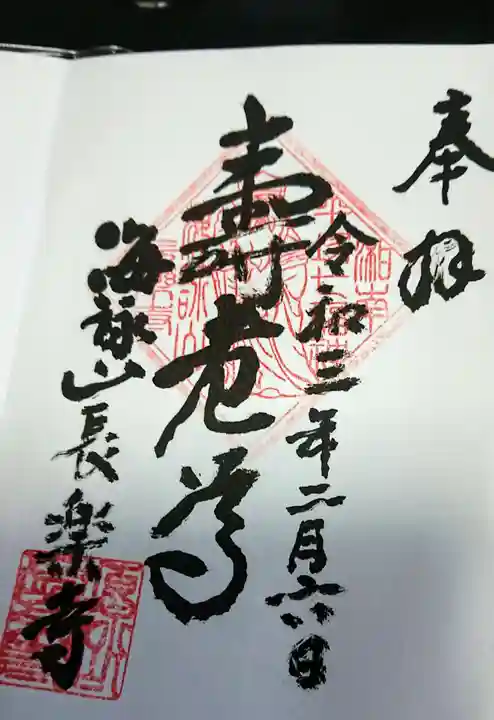 奉拝
令和三年二月六日
壽老尊
海詠山長楽寺